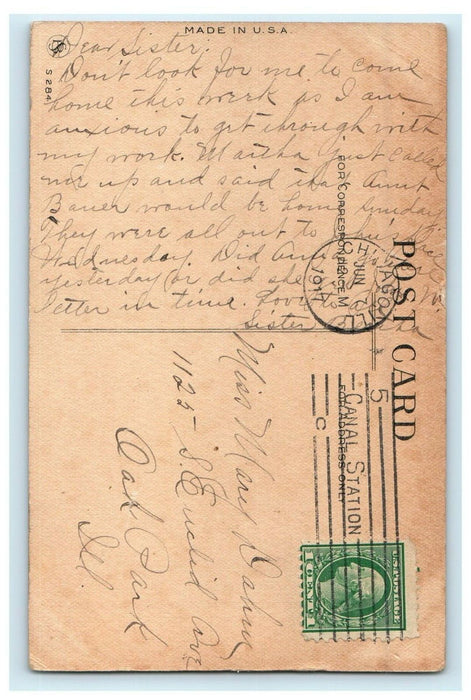 MADE IN U.S.A.
S 284
Dear Sister.
Don't look for me to come
home this week as I am
anxious to get through with
my work. Martha just called
me up and said that Aunt
Bauer would be home Sunday
They were all out to
Wednesday. Did Anna
yesterday or did she
letter in time. Love to
Sister
POST CARD
FOR CORRESPONDENCE
FOR ADDRESS ONLY
CHICAGO, ILL.
JUN
1917
CANAL STATION
5
C
U.S. POSTAGE
1 CENT 1
Miss Mary Dahm
1125 S. Euclid Ave
Oak Park
Ill